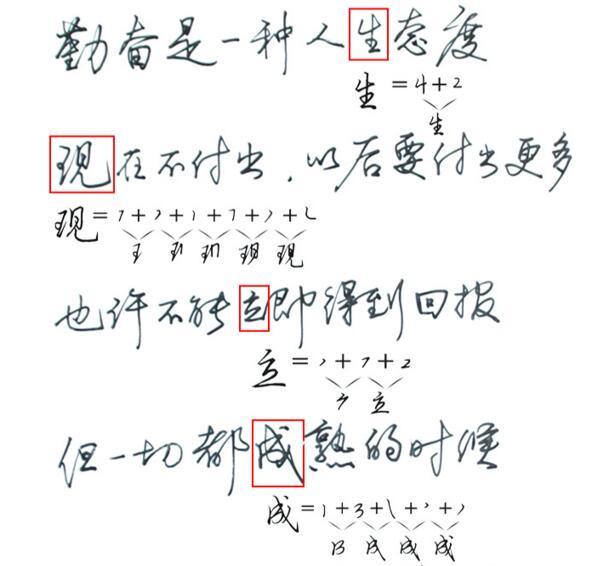 勤奋是一种人生态度
生 = 4 + 2
生
现在不付出，以后要付出更多
现 = 1 + 7 + 1 + 7 + 7 + L
王 现
也许不能立即得到回报
立 = 、 + 7 + 2
立
但一切都成熟的时候
成 = 1 + 3 + \ + 、 + 丿
成 成